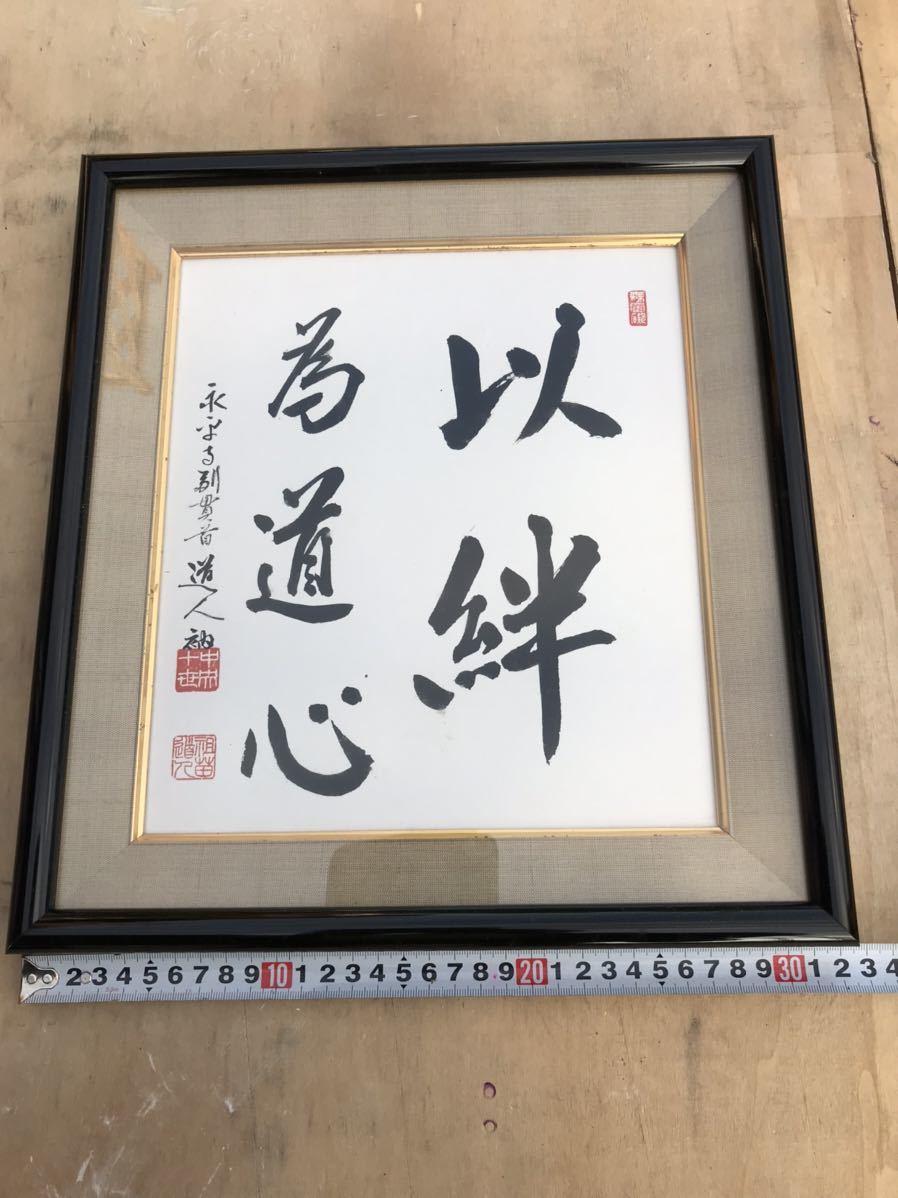 以絆
為道心
永平寺副貫首道人衲
祖苗
2 3 4 5 6 7 8 9 10 1 2 3 4 5 6 7 8 9 20 1 2 3 4 5 6 7 8 9 30 1 2 3 4